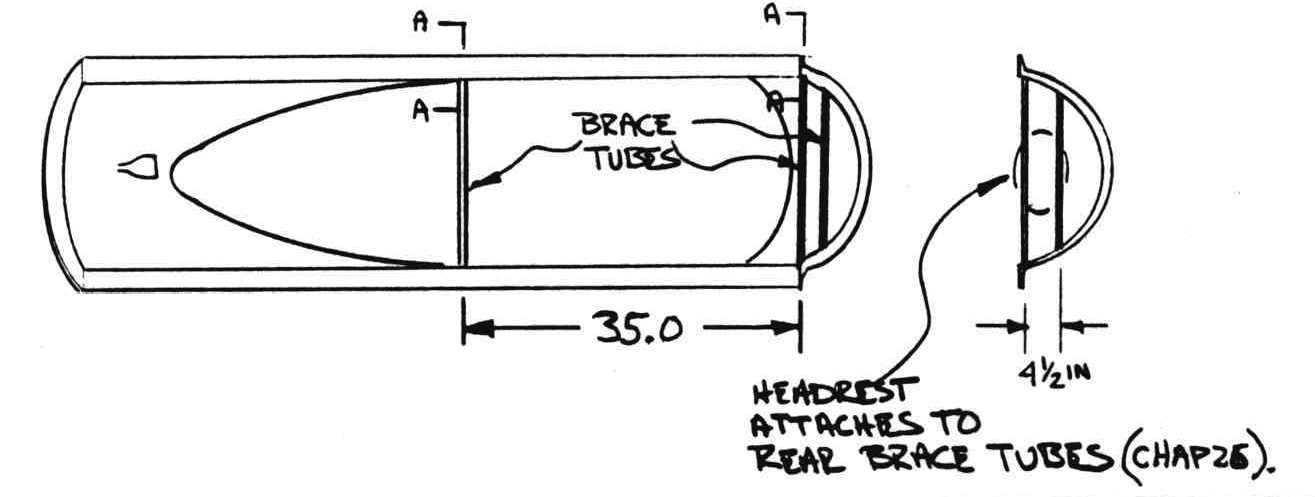 A
A
A
A
BRACE
TUBES
35.0
4 1/2 IN
HEADREST
ATTACHES TO
REAR BRACE TUBES (CHAP26).